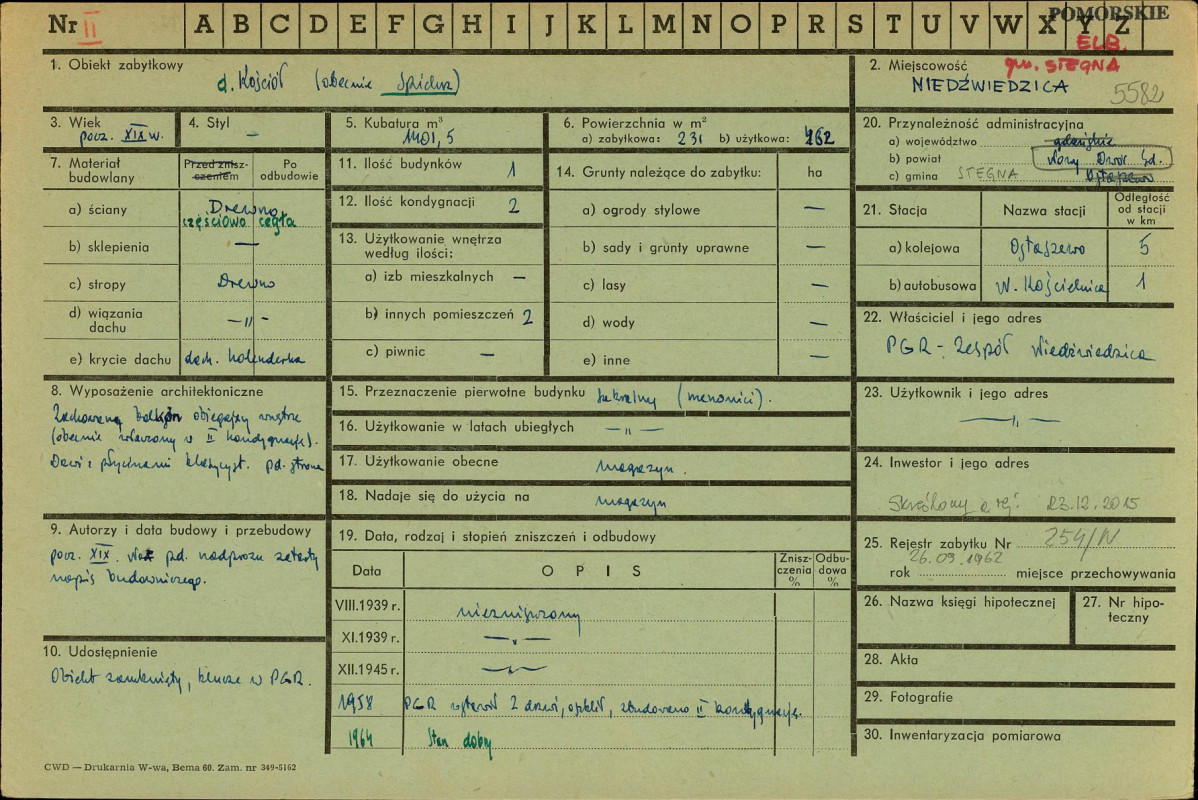 Nr II A B C D E F G H I J K L M N O P R S T U V W X Y Z
POMORSKIE
ELB.
gm. STEGNA
1. Obiekt zabytkowy
d. Kościół (obecnie Spichrz)
2. Miejscowość
NIEDŹWIEDZICA 5582
3. Wiek
pocz. XIX w.
4. Styl
—
5. Kubatura m³
1401,5
6. Powierzchnia w m²
a) zabytkowa: 231 b) użytkowa: 262
20. Przynależność administracyjna
a) województwo gdańskie
b) powiat Nowy Dwór Gd.
c) gmina STEGNA Ostaszewo
7. Materiał budowlany
Przed zniszczeniem
Po odbudowie
a) ściany Drewno
częściowo cegła
b) sklepienia —
c) stropy Drewno
d) wiązania dachu —„—
e) krycie dachu dach. holenderka
11. Ilość budynków 1
12. Ilość kondygnacji 2
13. Użytkowanie wnętrza według ilości:
a) izb mieszkalnych —
b) innych pomieszczeń 2
c) piwnic —
14. Grunty należące do zabytku: ha
a) ogrody stylowe —
b) sady i grunty uprawne —
c) lasy —
d) wody —
e) inne —
21. Stacja Nazwa stacji Odległość od stacji w km
a) kolejowa Ostaszewo 5
b) autobusowa N. Kościelnica 1
22. Właściciel i jego adres
PGR - Zespół Niedźwiedzica
8. Wyposażenie architektoniczne
Zachowany balkon obiegający wnętrze
(obecnie włączony w II kondygnację).
Drzwi z płycinami klasycyst. pd. strona
15. Przeznaczenie pierwotne budynku sakralny (menonici).
16. Użytkowanie w latach ubiegłych —„—
17. Użytkowanie obecne magazyn.
18. Nadaje się do użycia na magazyn
23. Użytkownik i jego adres
—„—
24. Inwestor i jego adres
Skreślony z rej. 23.12.2015
9. Autorzy i data budowy i przebudowy
pocz. XIX. pd. nadprożu zatarty
napis budowniczego.
19. Data, rodzaj i stopień zniszczeń i odbudowy
Data OPIS Zniszczenia % Odbudowa %
VIII.1939 r. niezniszczony
XI.1939 r. —„—
XII.1945 r. —„—
1958 PGR wstawił 2 drzwi, zbudowano II kondygnację.
1964 Stan dobry
25. Rejestr zabytku Nr 254/N
26.09.1962
rok miejsce przechowywania
26. Nazwa księgi hipotecznej
27. Nr hipoteczny
10. Udostępnienie
Obiekt zamknięty, klucze w PGR.
28. Akta
29. Fotografie
30. Inwentaryzacja pomiarowa
CWD — Drukarnia W-wa, Bema 60. Zam. nr 349-5162